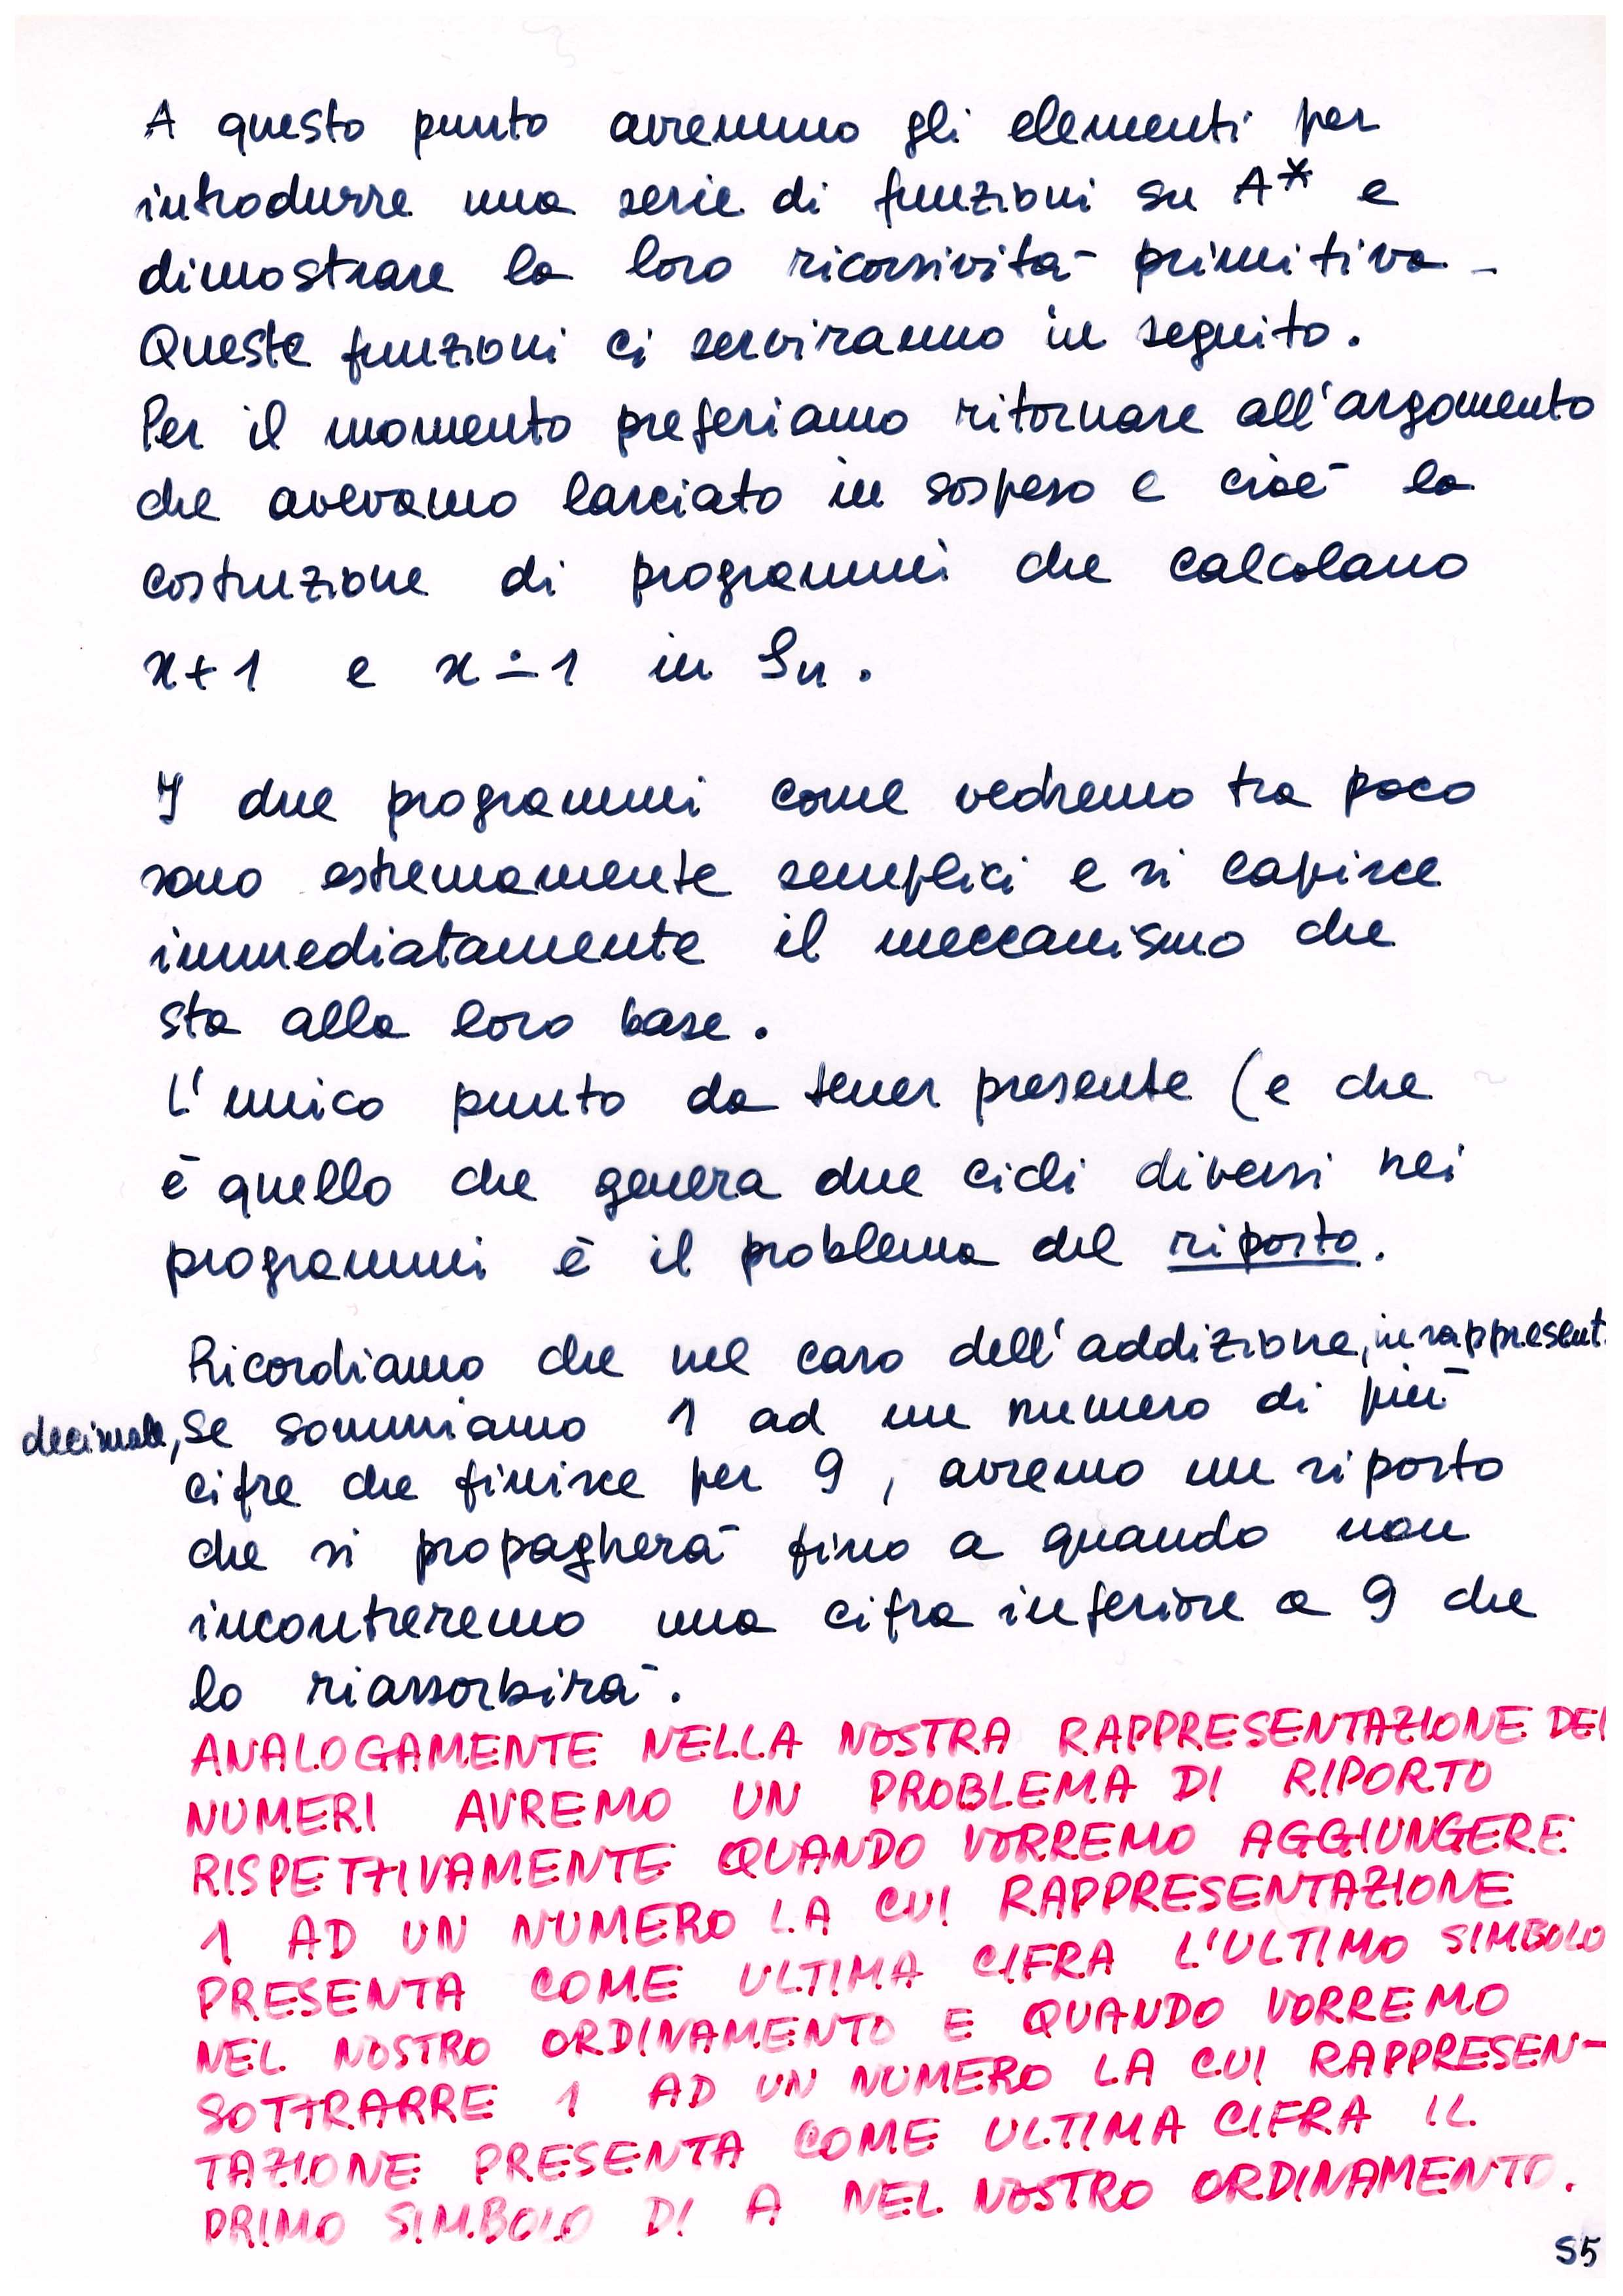 A questo punto avremmo gli elementi per
introdurre una serie di funzioni su A* e
dimostrare la loro ricorsività primitiva.
Queste funzioni ci serviranno in seguito.
Per il momento preferiamo ritornare all'argomento
che avevamo lasciato in sospeso e cioè la
costruzione di programmi che calcolano
x+1 e x∸1 in Sn.
I due programmi come vedremo tra poco
sono estremamente semplici e si capisce
immediatamente il meccanismo che
sta alla loro base.
L'unico punto da tener presente (e che
è quello che genera due cicli diversi nei
programmi è il problema del riporto.
Ricordiamo che nel caso dell'addizione, in rappresent.
decimale, se sommiamo 1 ad un numero di più
cifre che finisce per 9, avremo un riporto
che si propagherà fino a quando non
incontreremo una cifra inferiore a 9 che
lo riassorbirà.
ANALOGAMENTE NELLA NOSTRA RAPPRESENTAZIONE DEI
NUMERI AVREMO UN PROBLEMA DI RIPORTO
RISPETTIVAMENTE QUANDO VORREMO AGGIUNGERE
1 AD UN NUMERO LA CUI RAPPRESENTAZIONE
PRESENTA COME ULTIMA CIFRA L'ULTIMO SIMBOLO
NEL NOSTRO ORDINAMENTO E QUANDO VORREMO
SOTTRARRE 1 AD UN NUMERO LA CUI RAPPRESEN-
TAZIONE PRESENTA COME ULTIMA CIFRA IL
PRIMO SIMBOLO DI A NEL NOSTRO ORDINAMENTO.
S5